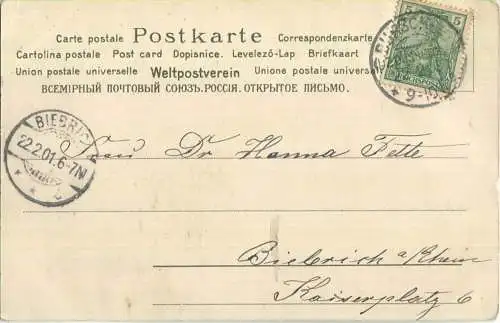 Carte postale Postkarte Correspondenzkarte
Cartolina postale Post card Dopisnice. Levelező-Lap Briefkaart
Union postale universelle Weltpostverein Unione postale universale
ВСЕМІРНЫЙ ПОЧТОВЫЙ СОЮЗЪ. РОССІЯ. ОТКРЫТОЕ ПИСЬМО.
5 5
9-10
BIEBRICH
22.2.01.6-7N
Frau Dr Hanna Fette
Biebrich a/Rhein
Kaiserplatz 6